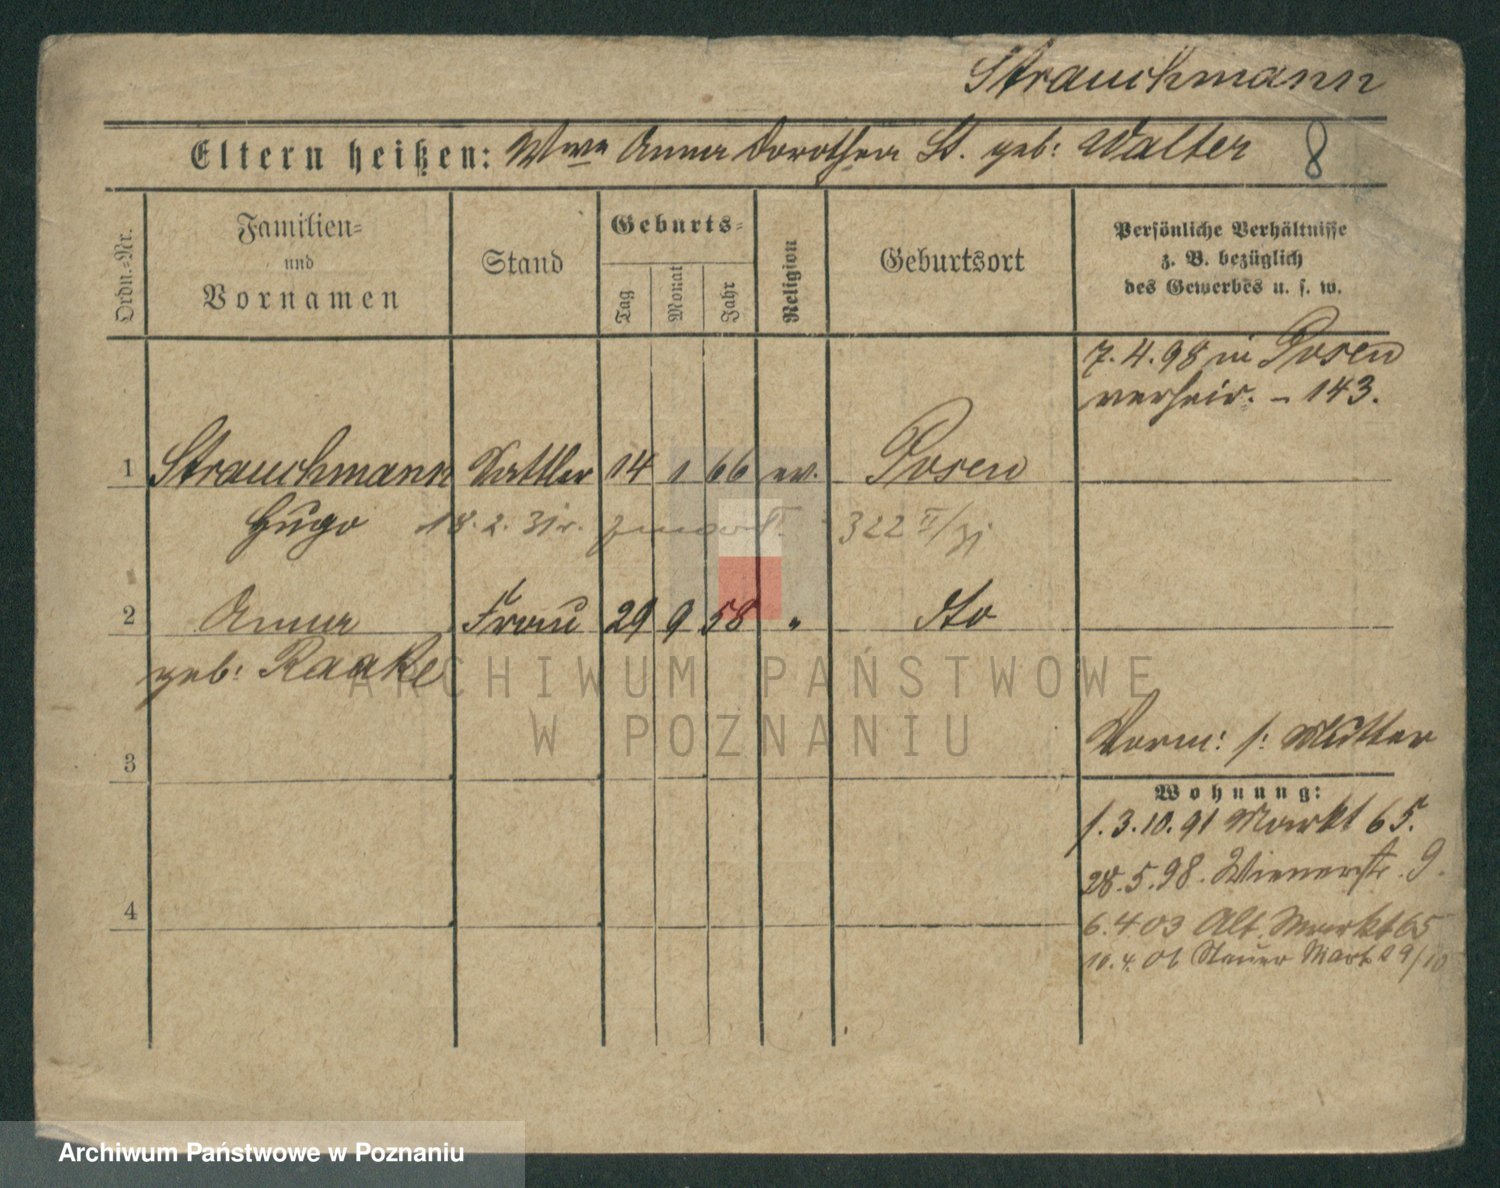 Strauchmann
Eltern heißen: Wwe Anna Dorothea St. geb: Walter 8
Ordn.-Nr.
Familien-
und
Vornamen
Stand
Geburts-
Tag
Monat
Jahr
Religion
Geburtsort
Persönliche Verhältnisse
z. B. bezüglich
des Gewerbes u. s. w.
7.4.98 in Posen
verheir. - 143.
1 Strauchmann Sattler 14 1 66 ev. Posen
Hugo 18.2.31 322 II/31
2 Anna Frau 29 9 58 " dto
geb: Raake
ARCHIWUM PAŃSTWOWE
W POZNANIU
3
Vorm: s: Mutter
Wohnung:
s. 3.10.91 Markt 65.
28.5.98. Wienerstr. 9.
4
6.4 03 Alt. Markt 65
10.4.06 Markt
Archiwum Państwowe w Poznaniu